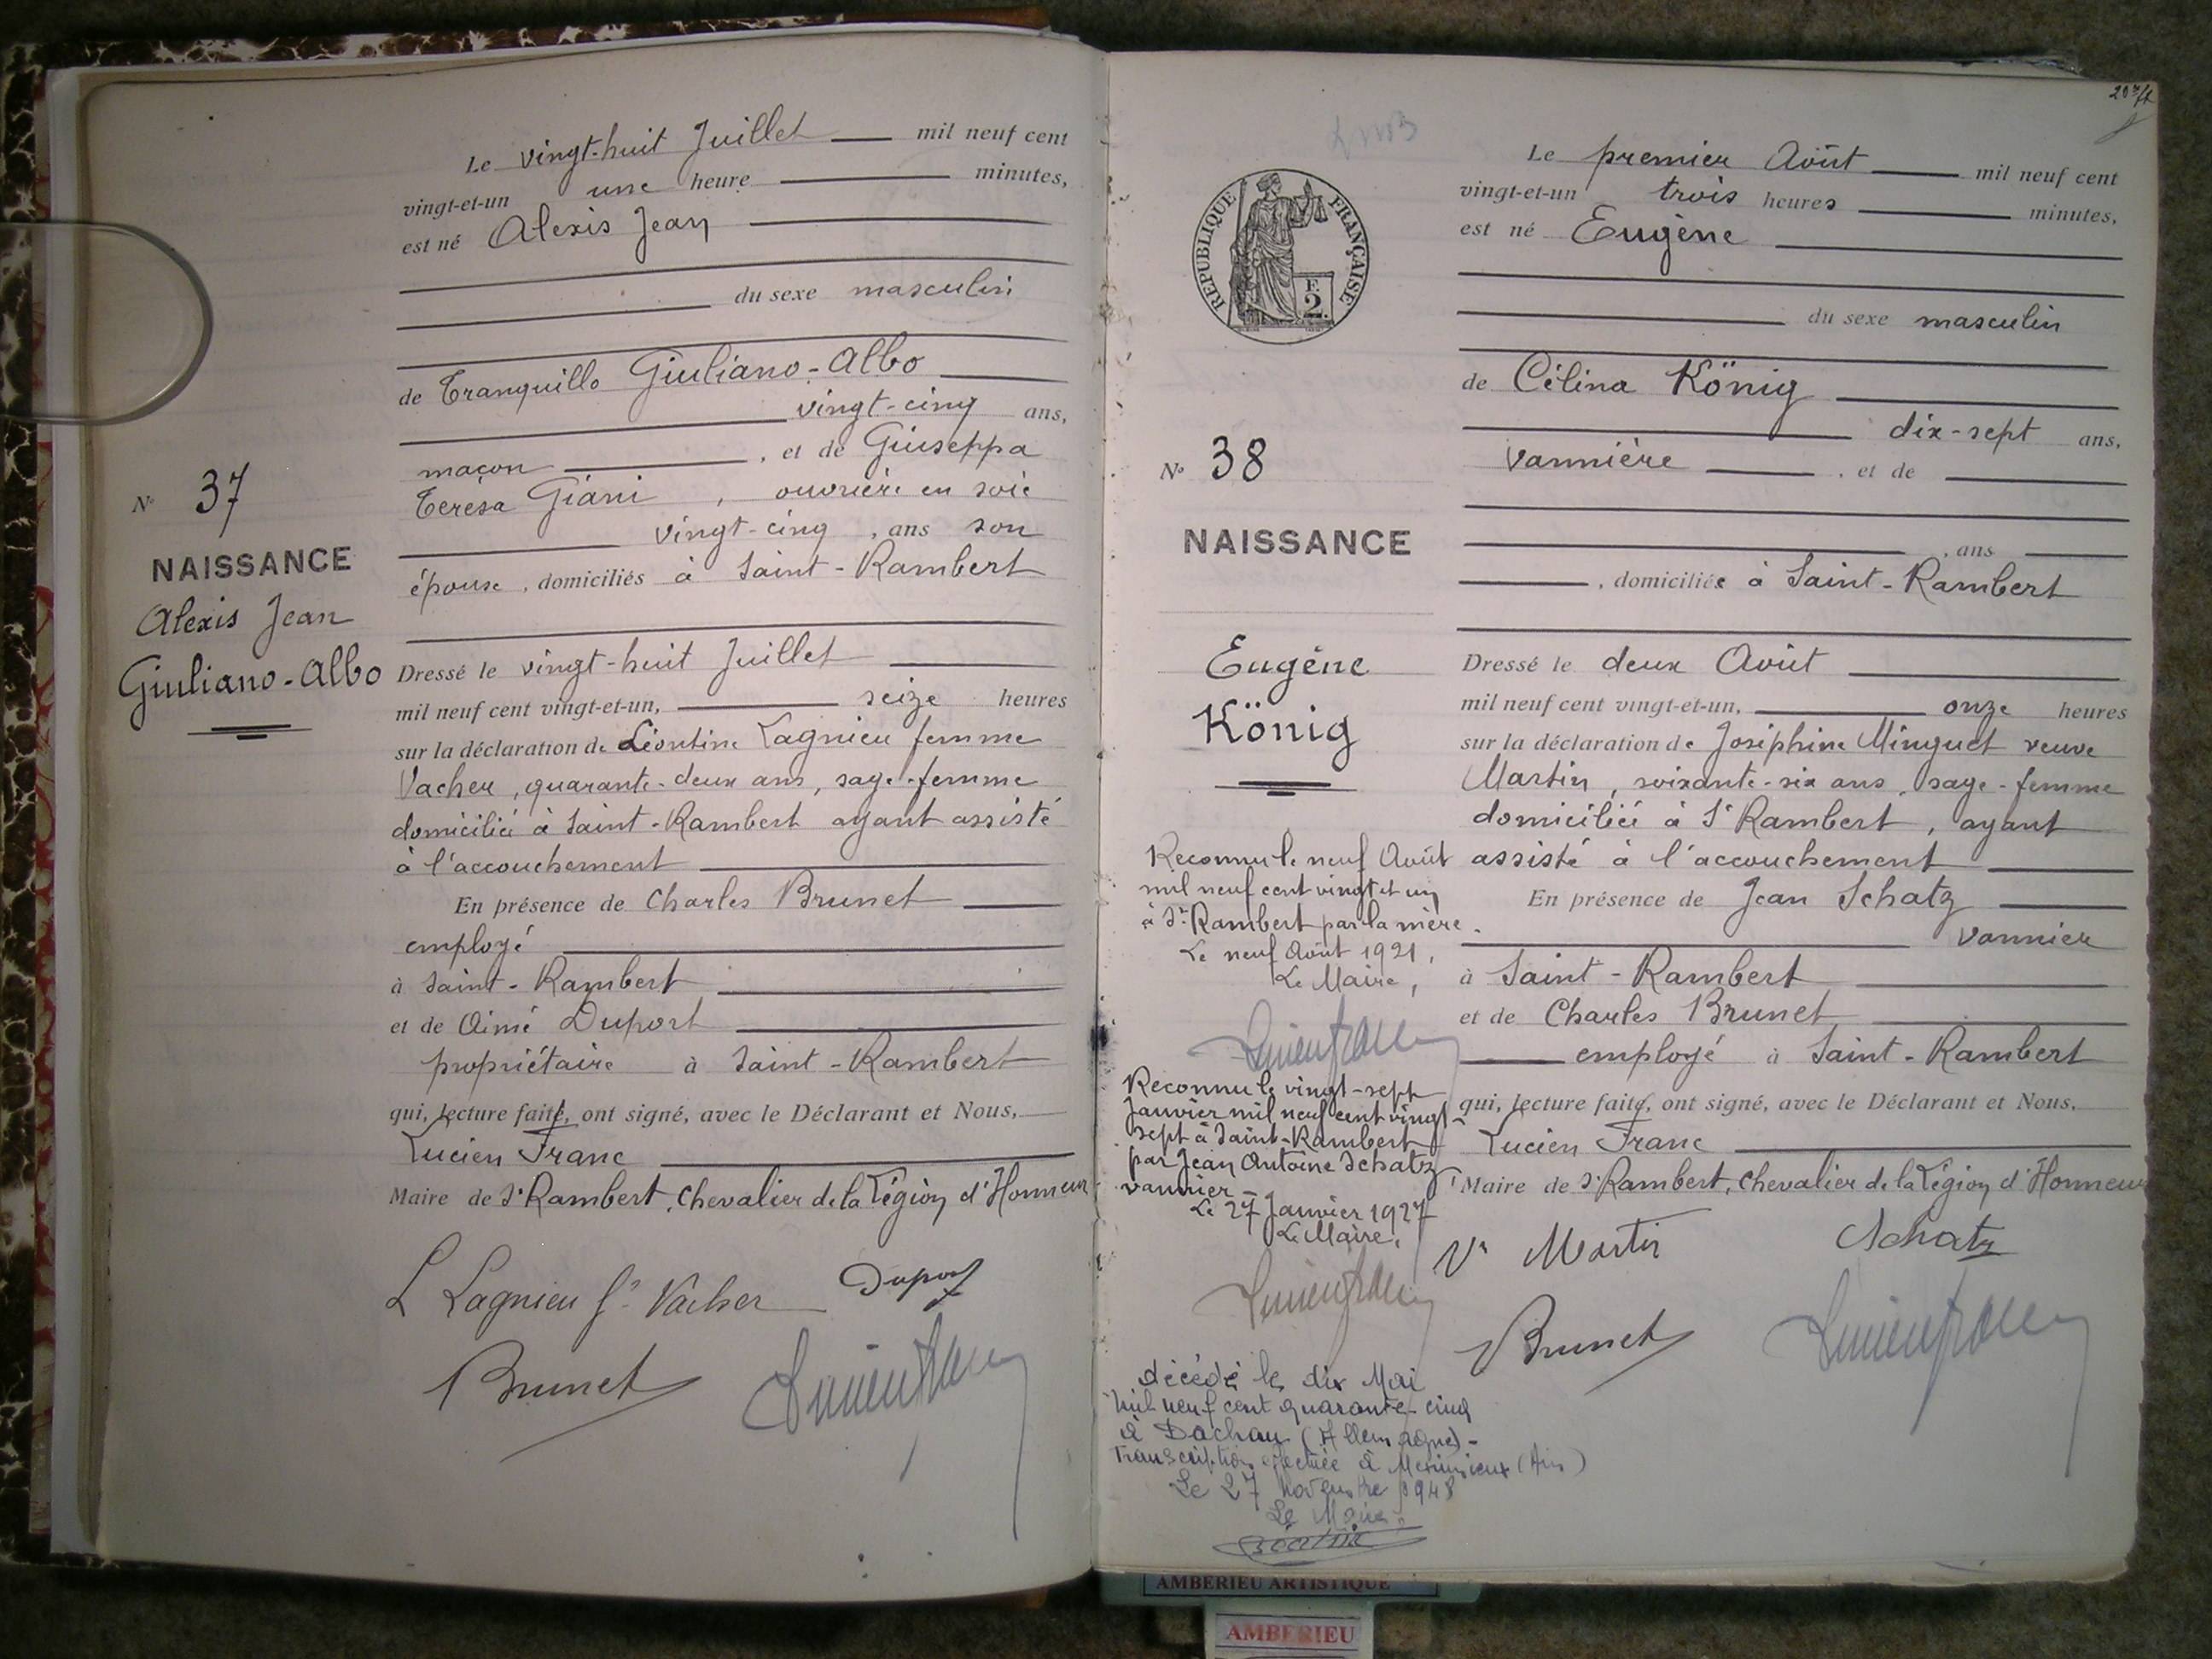 Le vingt-huit Juillet mil neuf cent
vingt-et-un une heure minutes,
est né Alexis Jean
du sexe masculin
de Tranquillo Giuliano-Albo
vingt-cinq ans,
maçon , et de Giuseppa
Teresa Giani , ouvrière en soie
vingt-cinq , ans son
épouse , domiciliés à Saint-Rambert
N° 37
NAISSANCE
Alexis Jean
Giuliano-Albo
Dressé le vingt-huit Juillet
mil neuf cent vingt-et-un, seize heures
sur la déclaration de Léontine Lagnieu femme
Vacher, quarante-deux ans, sage-femme
domiciliée à Saint-Rambert ayant assisté
à l'accouchement
En présence de Charles Brunet
employé
à Saint-Rambert
et de Aimé Duport
propriétaire à Saint-Rambert
qui, lecture faite, ont signé, avec le Déclarant et Nous,
Lucien Franc
Maire de St Rambert, Chevalier de la Légion d'Honneur
L Lagnieu fe Vacher Duport
Brunet Lucien Franc
Le premier Août mil neuf cent
vingt-et-un trois heures minutes,
est né Eugène
du sexe masculin
de Célina König
dix-sept ans,
Vannière , et de
, ans
, domiciliée à Saint-Rambert
REPUBLIQUE FRANÇAISE
F.
2.
N° 38
NAISSANCE
Eugène
König
Dressé le deux Août
mil neuf cent vingt-et-un, onze heures
sur la déclaration de Joséphine Minguet veuve
Martin, soixante-six ans, sage-femme
domiciliée à St Rambert, ayant
assisté à l'accouchement
En présence de Jean Schatz
vannier
à Saint-Rambert
et de Charles Brunet
employé à Saint-Rambert
qui, lecture faite, ont signé, avec le Déclarant et Nous,
Lucien Franc
Maire de St Rambert, Chevalier de la Légion d'Honneur
Ve Martin Schatz
Brunet Lucien Franc
Reconnu le neuf Août
mil neuf cent vingt et un
à St Rambert par la mère.
Le neuf Août 1921,
Le Maire,
Lucien Franc
Reconnu le vingt-sept
Janvier mil neuf cent vingt-
sept à Saint-Rambert
par Jean Antoine Schatz,
vannier-
Le 27 Janvier 1927
Le Maire,
Lucien Franc
décédé le dix Mai
mil neuf cent quarante-cinq
à Dachau (Allemagne)-
Transcription effectuée à Meximieux (Ain)
Le 27 Novembre 1948
Le Maire
AMBERIEU ARTISTIQUE
AMBERIEU